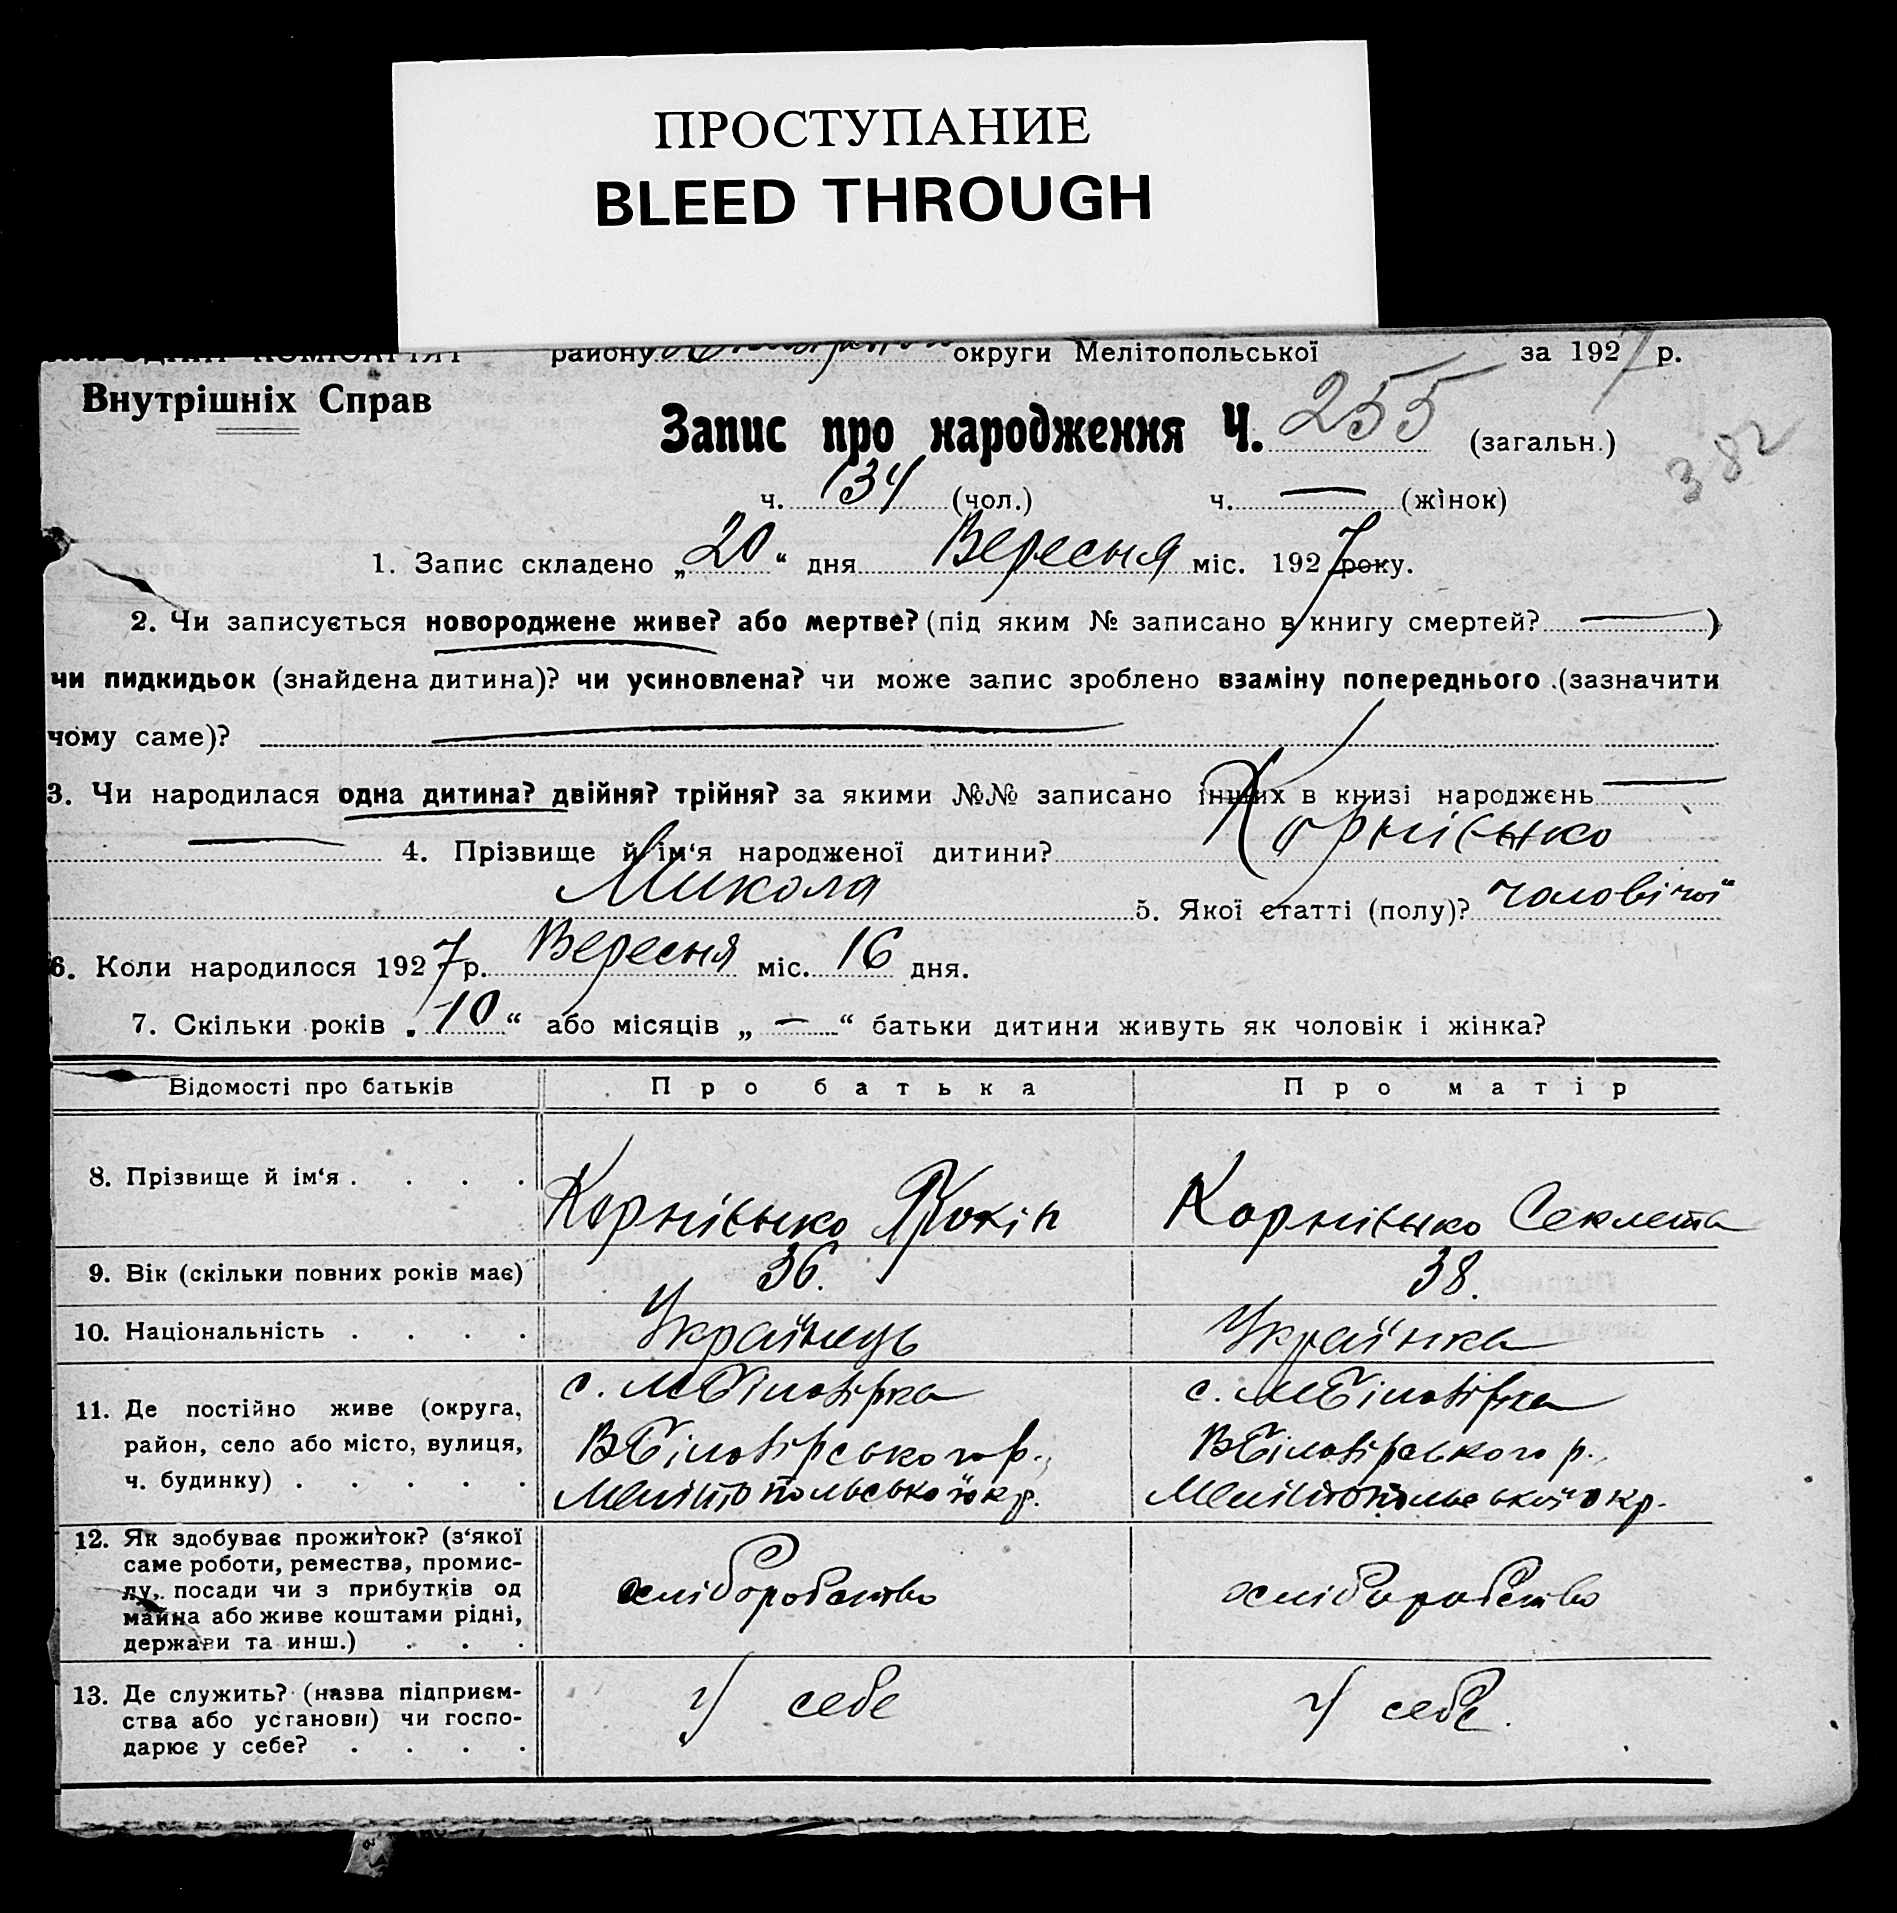 ПРОСТУПАНИЕ
BLEED THROUGH
району округи Мелітопольської за 1927 р.
Внутрішніх Справ
Запис про народження Ч. 255 (загальн.)
382
ч. 134 (чол.) ч. — (жінок)
1. Запис складено „20“ дня Вересня міс. 1927 року.
2. Чи записується новороджене живе? або мертве? (під яким № записано в книгу смертей? — )
чи пидкидьок (знайдена дитина)? чи усиновлена? чи може запис зроблено взаміну попереднього (зазначити
чому саме)? —
3. Чи народилася одна дитина? двійня? трійня? за якими №№ записано інших в книзі народжень —
— 4. Прізвище й ім‘я народженої дитини? Корнієнко
Микола 5. Якої статті (полу)? чоловічої
6. Коли народилося 1927 р. Вересня міс. 16 дня.
7. Скільки років „10“ або місяців „ — “ батьки дитини живуть як чоловік і жінка?
Відомості про батьків Про батька Про матір
8. Прізвище й ім‘я . . . . Корнієнко Корнієнко Секлета
9. Вік (скільки повних років має) 36. 38.
10. Національність . . . . Українець Українка
11. Де постійно живе (округа, с. МБілозірка с. МБілозірка
район, село або місто, вулиця, ВБілозірського р. ВБілозірського р.
ч. будинку) . . . . . Мелітопольської окр. Мелітопольської окр.
12. Як здобуває прожиток? (з‘якої
саме роботи, ремества, промис-
лу, посади чи з прибутків од хліборобство хліборобство
майна або живе коштами рідні,
держави та инш.) . . .
13. Де служить? (назва підприєм-
ства або установи) чи госпо- У себе У себе.
дарює у себе? . . . .